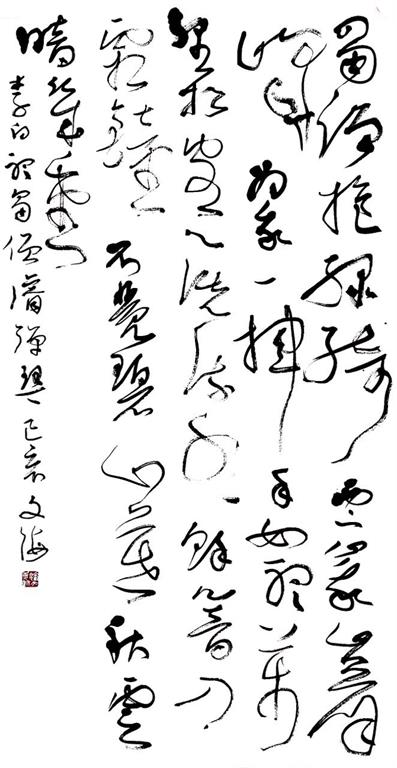 蜀僧抱綠綺西下峨眉
峰為我一揮手如聽萬
壑松客心洗流水餘響入
霜鐘不覺碧山暮秋雲
暗幾重
李白聽蜀僧濬彈琴己亥文海